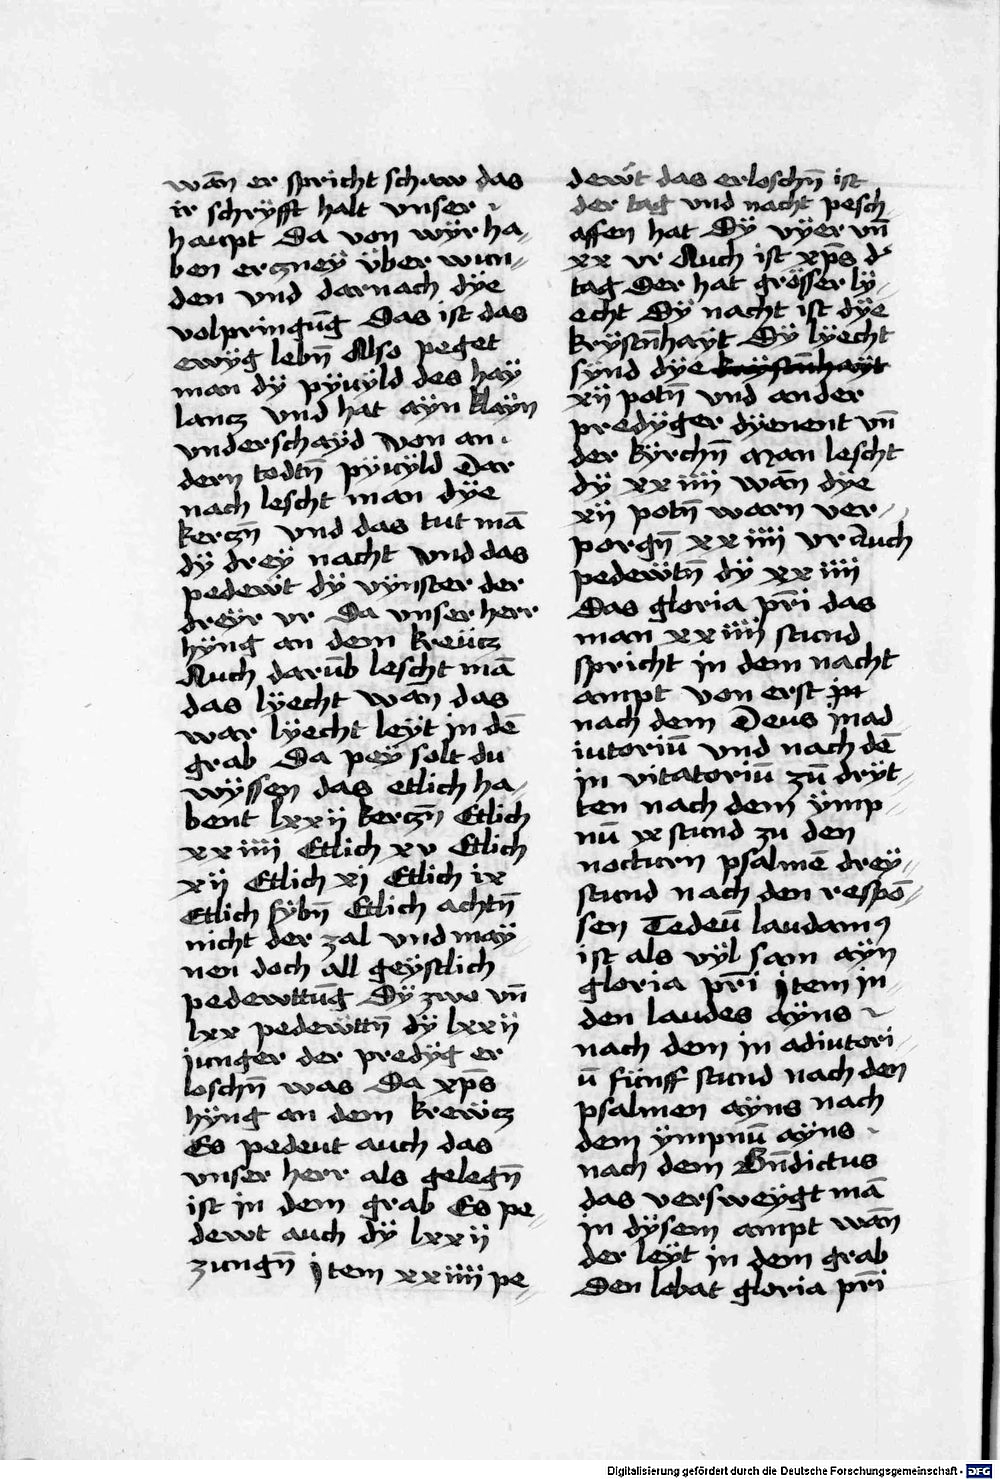 wan̄ er spricht schaw das
ir schrÿfft halt vnser
haupt Da von wÿr ha„
ben erczneÿ über wun„
den vnd darnach dÿe
volpringūg Das ist das
ewÿg lebn̄ Also peget
man dÿ pÿuÿld des haÿ
lancz vnd hat aÿn klaÿn
vnderschaÿd von an
dern todtn̄ pÿuÿld Dar
nach lescht man dÿe
kerczn̄ vnd das tut mā
dÿ dreÿ nacht vnd das
pedewt dÿ vÿnster der
dreÿr vr Da vnser herr
hÿng an dem kreücz
Auch darūb lescht mā
das lÿecht wan̄ das
war lÿecht leÿt in dē
grab Da peÿ solt du
wÿssen das etlich ha„
bent lxxij kerczn̄ Etlich
xxiiij Etlich xv Etlich
xij Etlich xj Etlich ix
Etlich sÿbn̄ Etlich achtn̄
nicht der zal vnd maÿ„
nen doch all geÿstlich
pedewttūg Dÿ zwo vn̄
lxx pedewttn̄ dÿ lxxij
junger der predÿg er
loschn̄ was Da xp̄s
hÿng an dem krewcz
Es pedeut auch das
vnser herr als gelegn̄
ist in dem grab Es pe„
dewt auch dÿ lxxij
zungn̄ jtem xxiiij pe„
dewt das erloschn̄ ist
der tag vnd nacht pesch„
affen hat Dÿ vÿer vn̄
xx vr Auch ist xp̄s d'
tag Der hat grösser lÿ„
echt Dÿ nacht ist dÿe
krÿstn̄haÿt Dÿ lÿecht
sÿnd dÿe krÿstn̄haÿt
xij potn̄ vnd ander
predÿger dÿenent vn̄
der kÿrchn̄ Man lescht
dÿ xxiiij wan̄ dÿe
xij potn̄ warn ver„
porgn̄ xxiiij vr Auch
pedewtn̄ dÿ xxiiij
Das gloria pr̄i das
man xxiiij stund
spricht in dem nacht
ampt von erst in
nach dem Deus in ad
iutoriū vnd nach dē
in vitatoriū zū drÿt„
ten nach dem ÿmp„
nū ix stund zu den
nocturn psalmē dreÿ„
stund nach den respō„
sen Tedeū laudam9
ist als vÿl sam aÿn
gloria pr̄i jtem in„
den laudes aÿns
nach dem in adiutori„
ū fünff stund nach den
psalmen aÿns nach
dem ÿmpnū aÿns
nach dem Bn̄dictus
das versweÿgt mā
in dÿsem ampt wan̄
der leÿt in dem grab
Den lobat gloria pr̄i
Digitalisierung gefördert durch die Deutsche Forschungsgemeinschaft - DFG